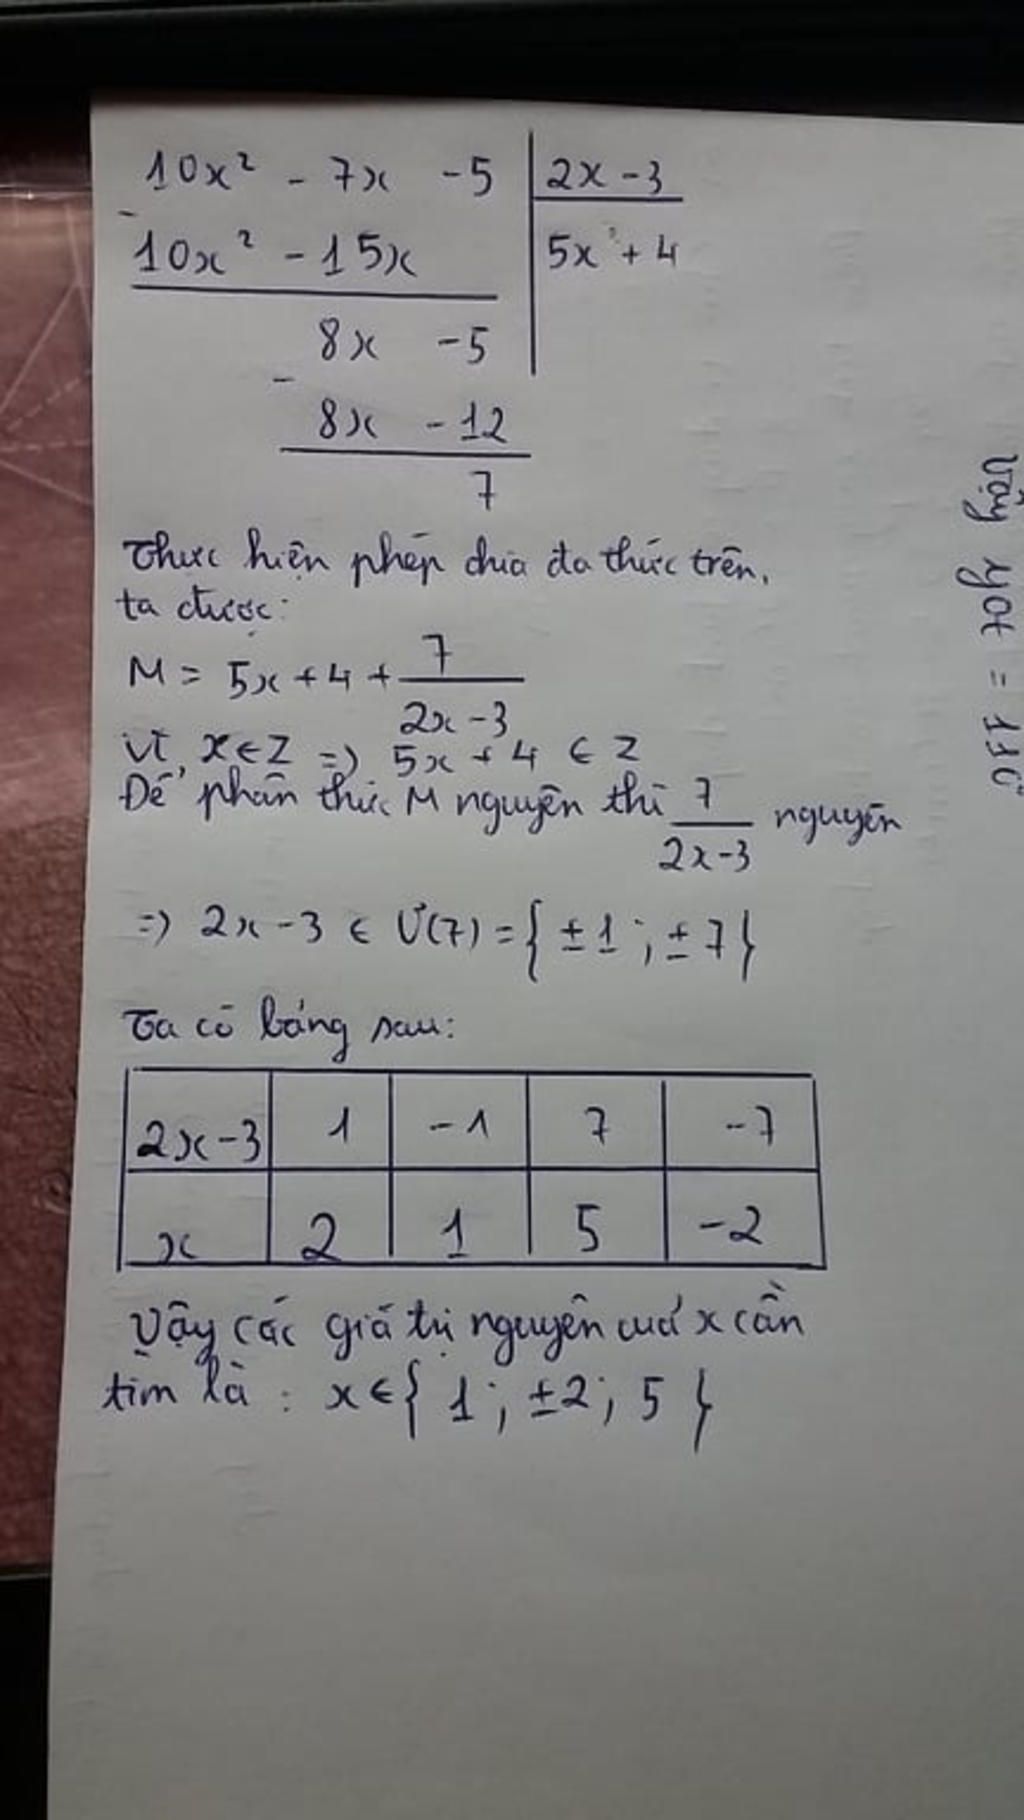 10x² - 7x -5 | 2x -3
- 10x² - 15x | 5x + 4
8x -5
- 8x - 12
7
Thực hiện phép chia đa thức trên,
ta được:
M = 5x + 4 + 7/(2x - 3)
Vì x ∈ Z => 5x + 4 ∈ Z
Để phân thức M nguyên thì 7/(2x-3) nguyên
=> 2x - 3 ∈ Ư(7) = { ± 1 ; ± 7 }
Ta có bảng sau:
2x -3 | 1 | -1 | 7 | -7
x | 2 | 1 | 5 | -2
Vậy các giá trị nguyên của x cần
tìm là : x ∈ { 1 ; ±2 ; 5 }
Vậy yOt = 110°